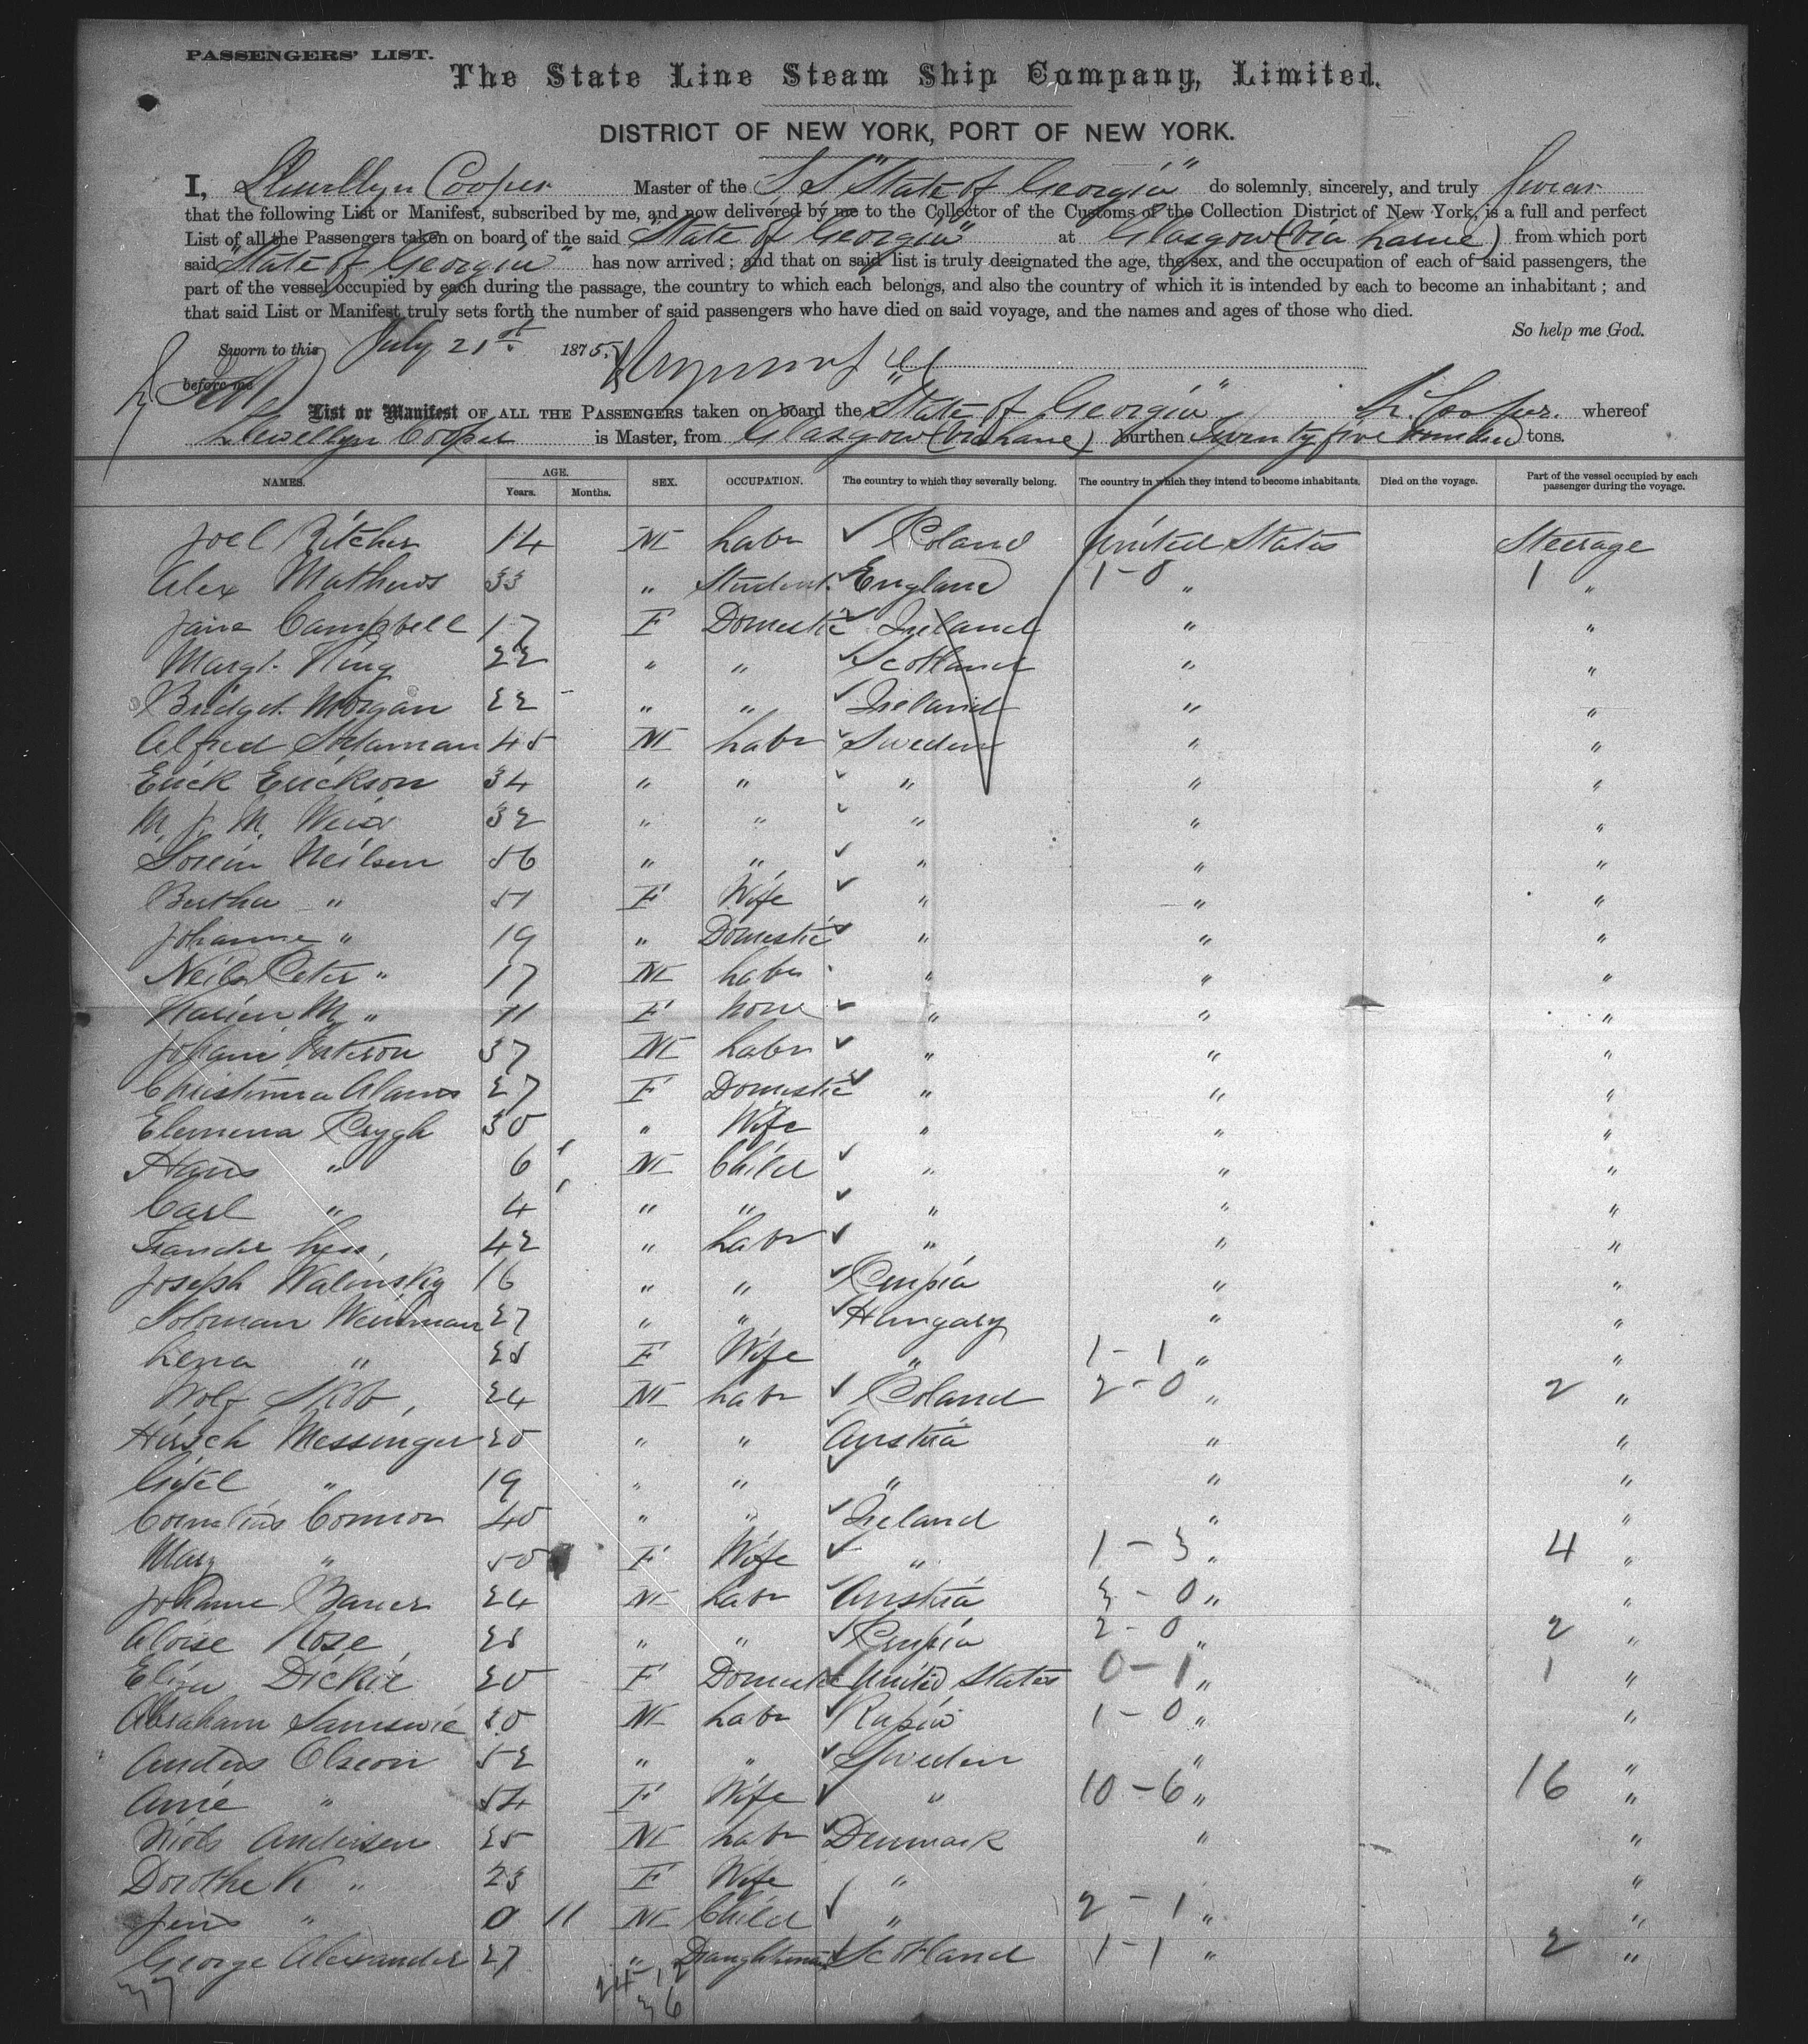 PASSENGERS' LIST.
The State Line Steam Ship Company, Limited.
DISTRICT OF NEW YORK, PORT OF NEW YORK.
I, Llewellyn Cooper Master of the S.S. "State of Georgia" do solemnly, sincerely, and truly swear
that the following List or Manifest, subscribed by me, and now delivered by me to the Collector of the Customs of the Collection District of New York, is a full and perfect
List of all the Passengers taken on board of the said "State of Georgia" at Glasgow (via Larne) from which port
said "State of Georgia" has now arrived; and that on said list is truly designated the age, the sex, and the occupation of each of said passengers, the
part of the vessel occupied by each during the passage, the country to which each belongs, and also the country of which it is intended by each to become an inhabitant; and
that said List or Manifest truly sets forth the number of said passengers who have died on said voyage, and the names and ages of those who died.
So help me God.
Sworn to this July 21st. 1875.
before me
List or Manifest OF ALL THE PASSENGERS taken on board the "State of Georgia" L. Cooper. whereof
Llewellyn Cooper is Master, from Glasgow (via Larne) burthen Twenty five hundred tons.
NAMES. AGE. Years. Months. SEX. OCCUPATION. The country to which they severally belong. The country in which they intend to become inhabitants. Died on the voyage. Part of the vessel occupied by each passenger during the voyage.
Joel Pitcher 14 M Labr ✓ Poland United States Steerage
Alex Mathews 33 " Student ✓ England 1-0 " 1 "
Jane Campbell 17 F Domestic ✓ Ireland " "
Margt. King 22 " " ✓ Scotland " "
Bridget Morgan 22 " " ✓ Ireland " "
Alfred 45 M Labr ✓ Sweden " "
Erick Erickson 34 " " ✓ " " "
M. J. M. Weis 32 " " ✓ " " "
Sorein Neilsen 56 " " ✓ " " "
Bertha " 51 F Wife ✓ " " "
Johanne " 19 " Domestic ✓ " " "
Neils Peter " 17 M Labr " " "
M " 11 F None ✓ " " "
Johann 37 M Labr ✓ " " "
Christinna 27 F Domestic ✓ " " "
Elemena 30 " Wife " " "
Hans " 6 M Child ✓ " " "
Carl " 4 " " ✓ " " "
42 " Labr ✓ " " "
Joseph Walinsky 16 " " ✓ " "
Soloman 27 " " ✓ Hungary " "
Lena " 25 F Wife " 1-1 " "
Wolf 24 M Labr ✓ Poland 2-0 " 2 "
Hirsch Messinger 20 " " ✓ Austria " "
Gitel " 19 " " ✓ " " "
Cornelius Connor 40 " " ✓ Ireland " "
Mary " 50 F Wife ✓ " 1-3 " 4 "
Johanne Bauer 24 M Labr ✓ Austria 3-0 " "
Aloise Kose 28 " " ✓ 2-0 " 2 "
Eliza Dickie 20 F Domestic ✓ United States 0-1 " 1 "
Abraham 30 M Labr ✓ Russia 1-0 " "
Anders Olseon 52 " " ✓ Sweden " "
Anne " 54 F Wife ✓ " 10-6 " 16 "
Niels Andersen 25 M Labr ✓ Denmark " "
Dorothe K " 23 F Wife " " "
Jens " 0 11 M Child ✓ " 2-1 " "
George Alexander 27 " Draughtsman ✓ Scotland 1-1 " 2 "
37 24-12
36